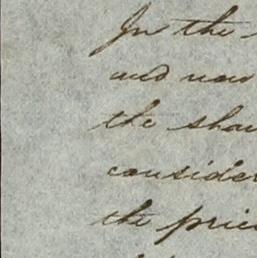 In the
and now
the shar
consider
the pric